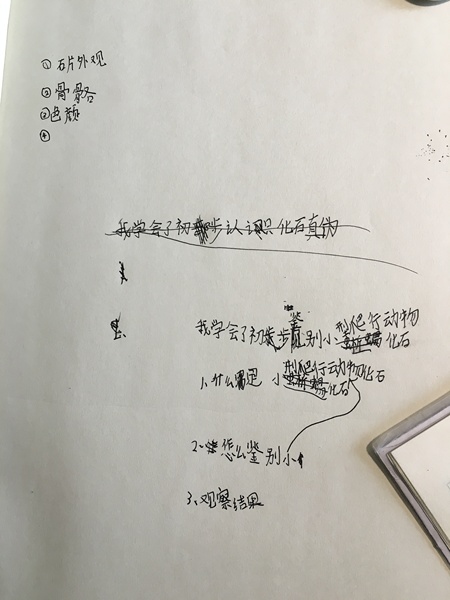 ① 石片外观
② 骨骼
③ 色颜
④
我学会了初步认识化石真伪
我学会了初步鉴别小型爬行动物化石
1、什么是 小型爬行动物化石
2、怎么鉴别小
3、观察结果